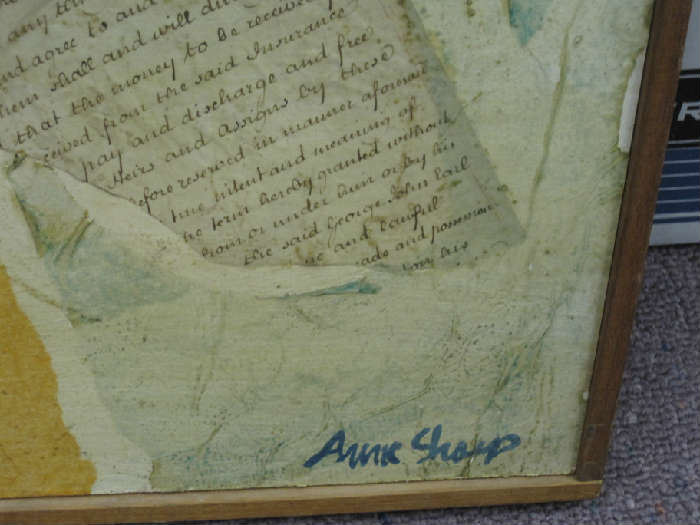 any th
nd agree to and
hem shall and will du
that the money to be received
ceived from the said Insurance
pay and discharge and free
heirs and assigns by these
efore reserved in manner aforesaid
true intent and meaning of
he term hereby granted without
from or under him or by his
the said George John Earl
and lawful
ads and possession
his
Anne Sharp
R